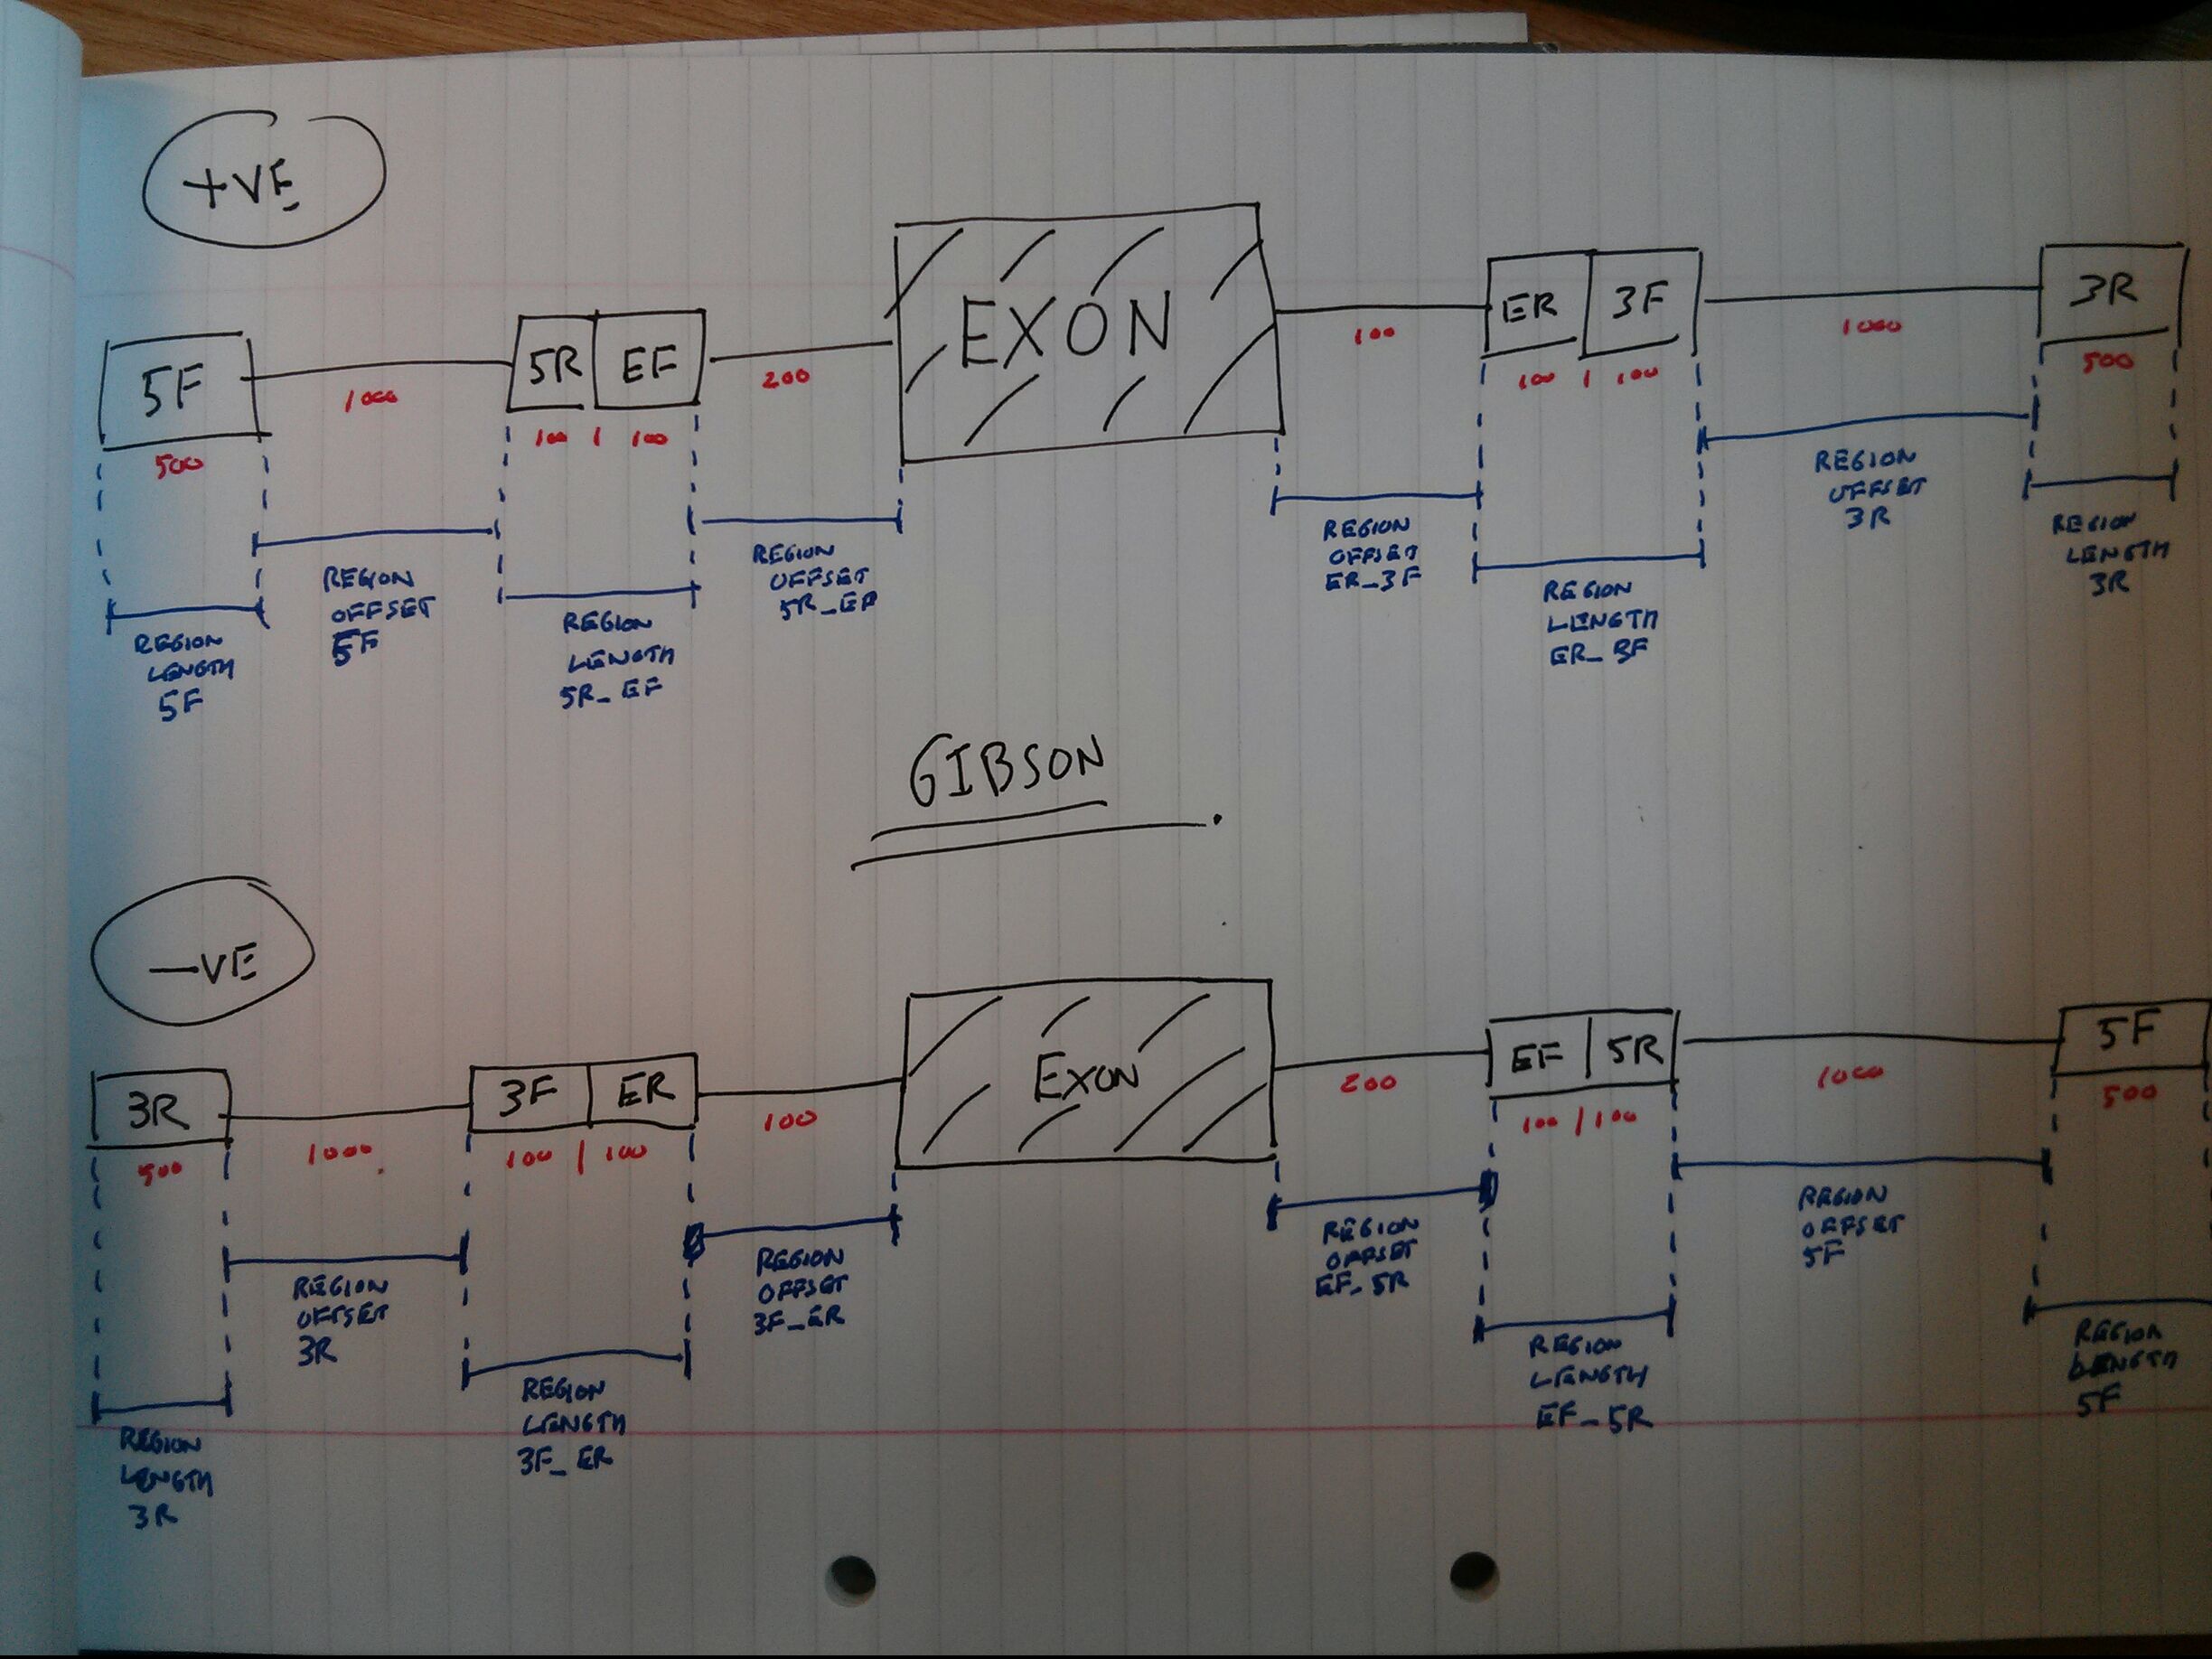 +VE
5F
1000
5R EF
200
EXON
100
ER 3F
1000
3R
500
100 | 100
100 | 100
500
REGION
LENGTH
5F
REGION
OFFSET
5F
REGION
LENGTH
5R_EF
REGION
OFFSET
5R_EF
REGION
OFFSET
ER_3F
REGION
LENGTH
ER_3F
REGION
OFFSET
3R
REGION
LENGTH
3R
GIBSON
-VE
3R
1000
3F ER
100
EXON
200
EF 5R
1000
5F
500
100 | 100
100 / 100
500
REGION
LENGTH
3R
REGION
OFFSET
3R
REGION
LENGTH
3F_ER
REGION
OFFSET
3F_ER
REGION
OFFSET
EF_5R
REGION
LENGTH
EF_5R
REGION
OFFSET
5F
REGION
LENGTH
5F